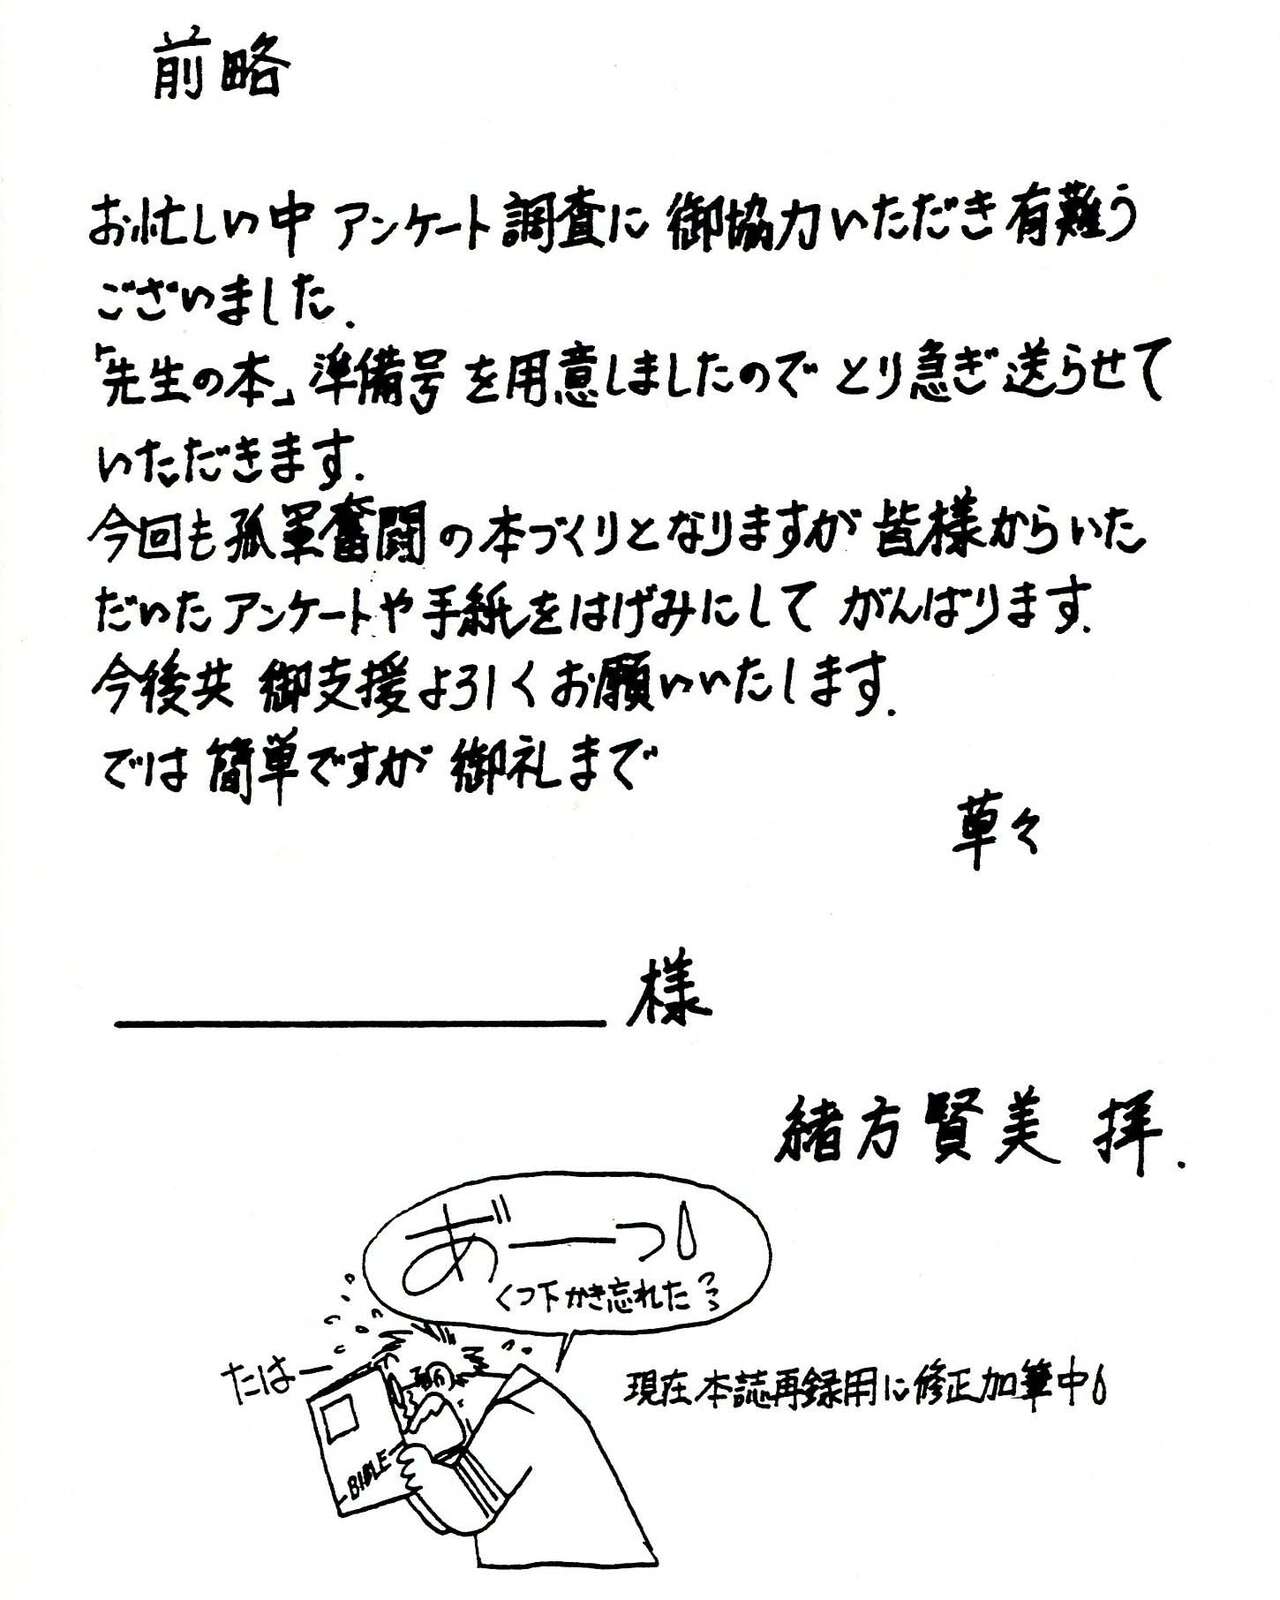 前略
お忙しい中 アンケート調査に 御協力いただき 有難う
ございました.
「先生の本」準備号を用意しましたので とり急ぎ 送らせて
いただきます.
今回も孤軍奮闘の本づくりとなりますが 皆様からいた
だいたアンケートや手紙をはげみにして がんばります.
今後共 御支援よろしくお願いいたします.
では 簡単ですが 御礼まで
草々
様
緒方賢美 拝.
あ゛ーーっ
くつ下かき忘れた
たはー
BIBLE
現在本誌再録用に修正加筆中